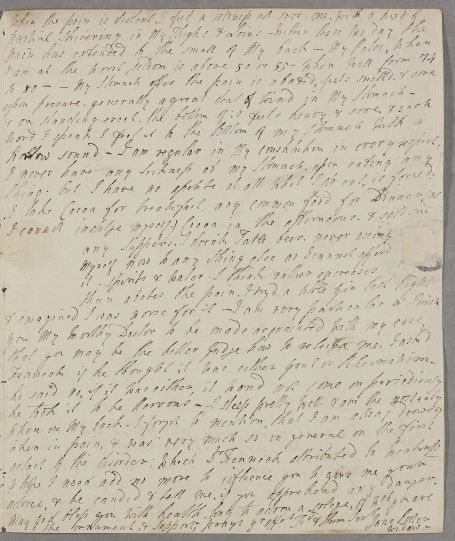 when the pain is violent, I feel a coldness all over me, with a kind of
partial shivering in my Thighs & Arms - within these few day the
pain has extended to the small of my back - My Pulse, when
I am at the worst seldom is above 50 or 55 - & when well from 74
to 80 - - My Stomach after the pain is abated, feels swelld, & sore
upon pressure, generally a great deal of wind in my Stomach -
& on standing erect, the bottom of it feels heavy & sore, & each
word I speak, I feel it to the bottom of my Stomach with a
hollow sound - I am regular in my evacuation in every respect,
I never have any Sickness at my Stomach, upon eating any
thing. but I have no apetite at all what I do eat, is forced.
I take Cocoa for breakfast, any common food for Dinner, (as
I cannot indulge myself) Cocoa in the afternoons. & seldom
any supper. I drink Table beer. never using
myself to any thing else as I cannot afford
it - Spirits & water - I think rather encreases
than abates the pain, I try'd a little Gin last Night
& imagined I was worse for it - I am very particular as I wish
you My Worthy Doctor to be made acquainted with my case,
that you may be the better judge how to relieve me. I ask'd
Fenneck if he thought it was either gout or Rheumatism.
he said no, if it was either it would not come on periodicaly
he took it to be Nervous - I sleep pretty well, rather uneasy
when on my back. I forgot to mention, that I am always drowsy
when in pain, & was very much so in general on the first
attack of the disorder: which Fenneck attributed to weakness
I hope I need add no more to influence you to give me your
advice, & be candid & tell me, if you apprehend any danger.
may God bless you with health. long to adorn a college, of which you are
the ornament, & support prays yr gratefull & humble sert
Jane
widow -